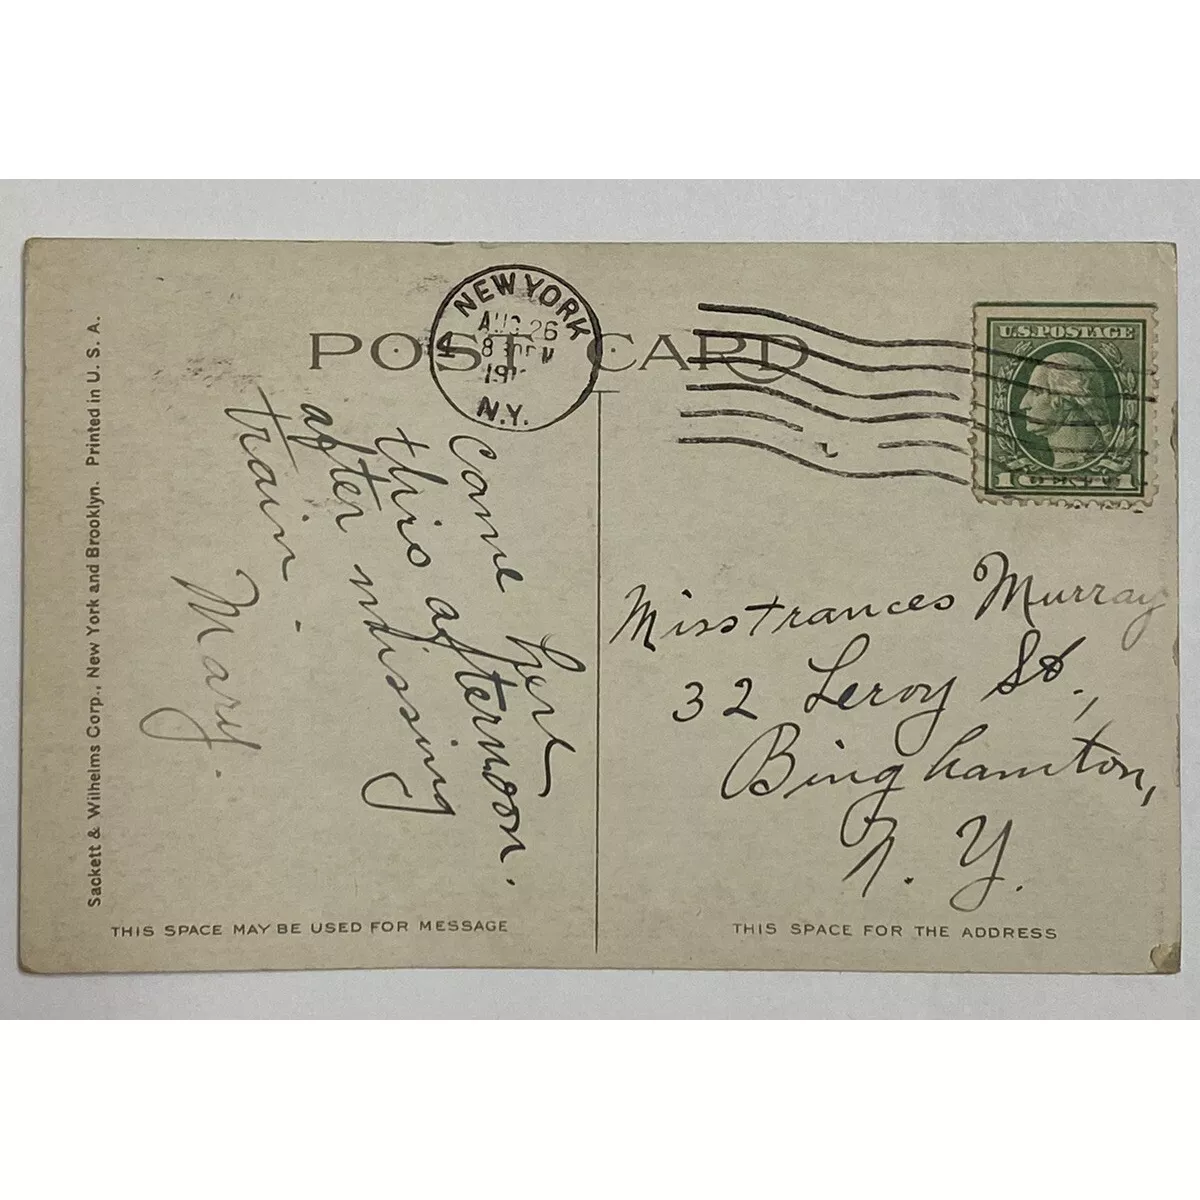 POST CARD
NEW YORK
AUG 26
8 30 PM
N.Y.
U.S. POSTAGE
1 1
Come here
this afternoon.
after missing
train.
Mary.
Miss Frances Murray
32 Leroy St.,
Binghamton,
N. Y.
THIS SPACE MAY BE USED FOR MESSAGE
THIS SPACE FOR THE ADDRESS
Sackett & Wilhelms Corp., New York and Brooklyn. Printed in U. S. A.